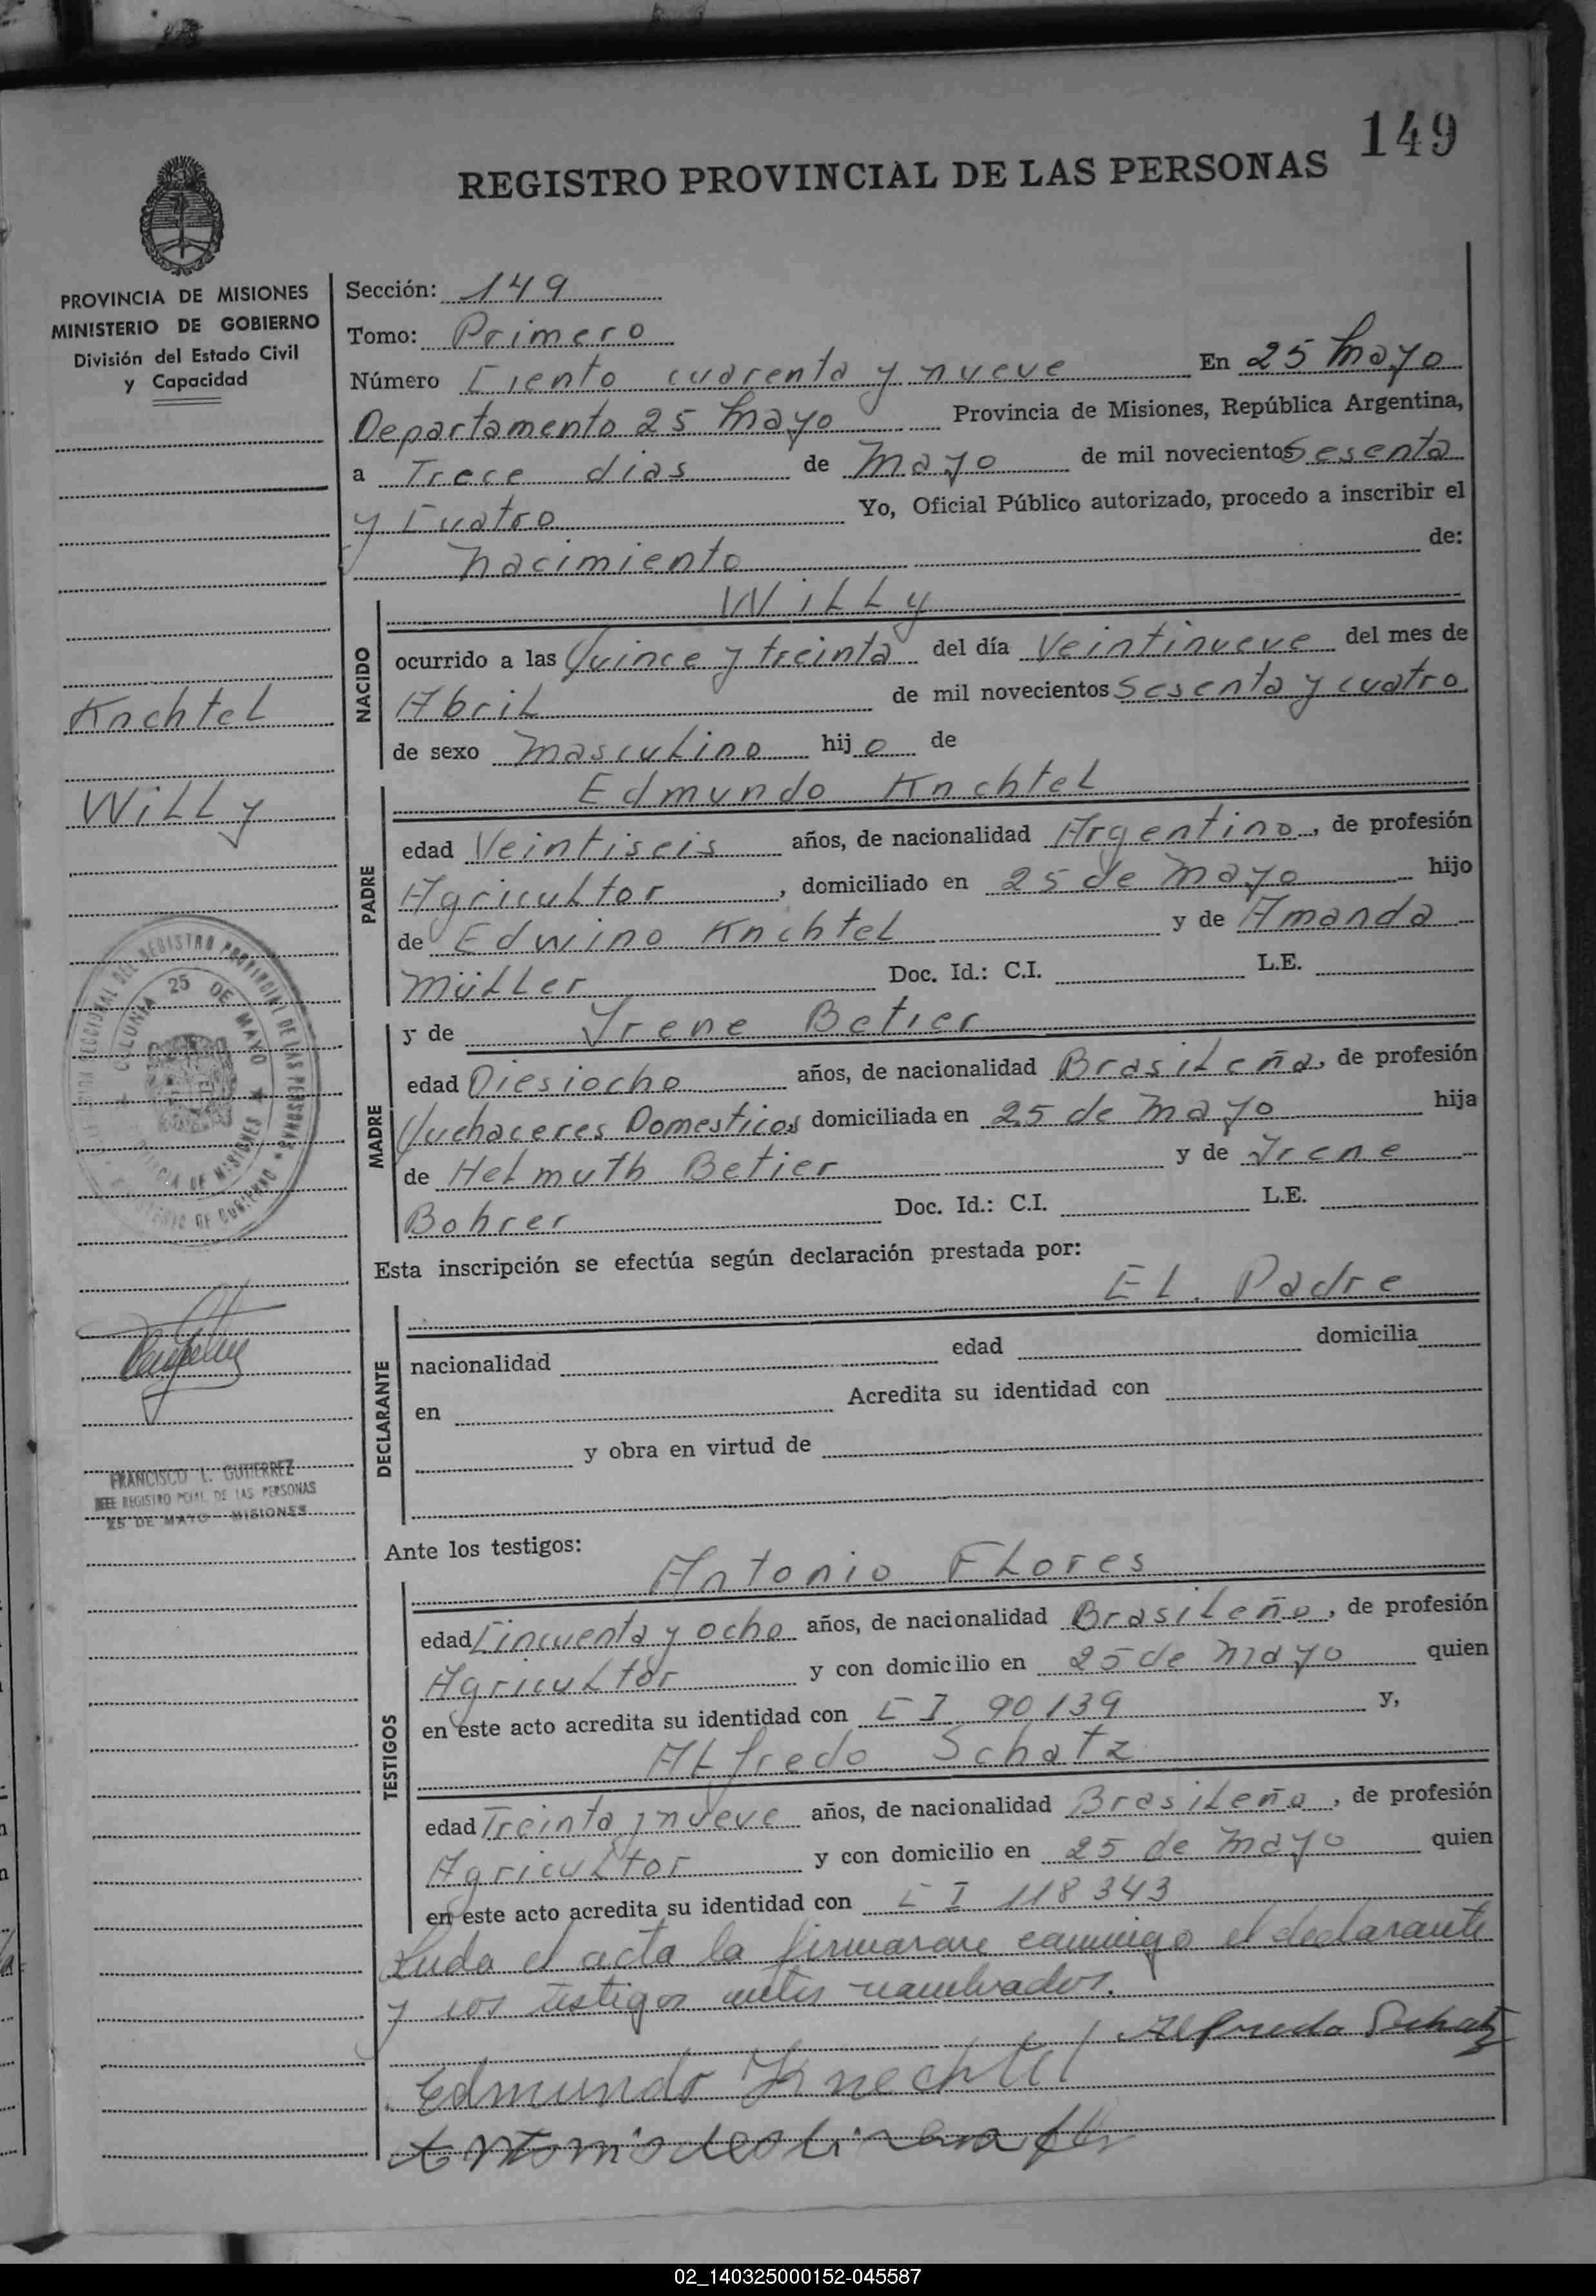 149
REGISTRO PROVINCIAL DE LAS PERSONAS
PROVINCIA DE MISIONES
MINISTERIO DE GOBIERNO
División del Estado Civil
y Capacidad
Knchtel
Willy
COLONIA 25 DE MAYO
FRANCISCO L. GUTIERREZ
JEFE REGISTRO PCIAL. DE LAS PERSONAS
25 DE MAYO - MISIONES
Sección: 149
Tomo: Primero
Número Ciento cuarenta y nueve En 25 Mayo
Departamento 25 Mayo Provincia de Misiones, República Argentina,
a Trece dias de Mayo de mil novecientos Sesenta
y Cuatro Yo, Oficial Público autorizado, procedo a inscribir el
Nacimiento de:
Willy
NACIDO
ocurrido a las Quince y treinta del día Veintinueve del mes de
Abril de mil novecientos Sesenta y cuatro
de sexo Masculino hijo de
Edmundo Knchtel
PADRE
edad Veintiseis años, de nacionalidad Argentino, de profesión
Agricultor, domiciliado en 25 de Mayo hijo
de Edwino Knchtel y de Amanda
Müller Doc. Id.: C.I. L.E.
y de Yrene Betier
MADRE
edad Diesiocho años, de nacionalidad Brasileña, de profesión
Quchaceres Domesticos domiciliada en 25 de Mayo hija
de Helmuth Betier y de Yrene
Bohrer Doc. Id.: C.I. L.E.
Esta inscripción se efectúa según declaración prestada por:
El. Padre
DECLARANTE
nacionalidad edad domicilia
en Acredita su identidad con
y obra en virtud de
Ante los testigos:
Antonio Flores
TESTIGOS
edad Cincuenta y ocho años, de nacionalidad Brasileño, de profesión
Agricultor y con domicilio en 25 de Mayo quien
en este acto acredita su identidad con C I 90139 y,
Alfredo Schatz
edad Treinta y nueve años, de nacionalidad Brasileño, de profesión
Agricultor y con domicilio en 25 de Mayo quien
en este acto acredita su identidad con C I 118343
el acta la conmigo el declarante
y los testigos antes nombrados.
Alfredo Schatz
Edmundo Knechtel
02_140325000152-045587